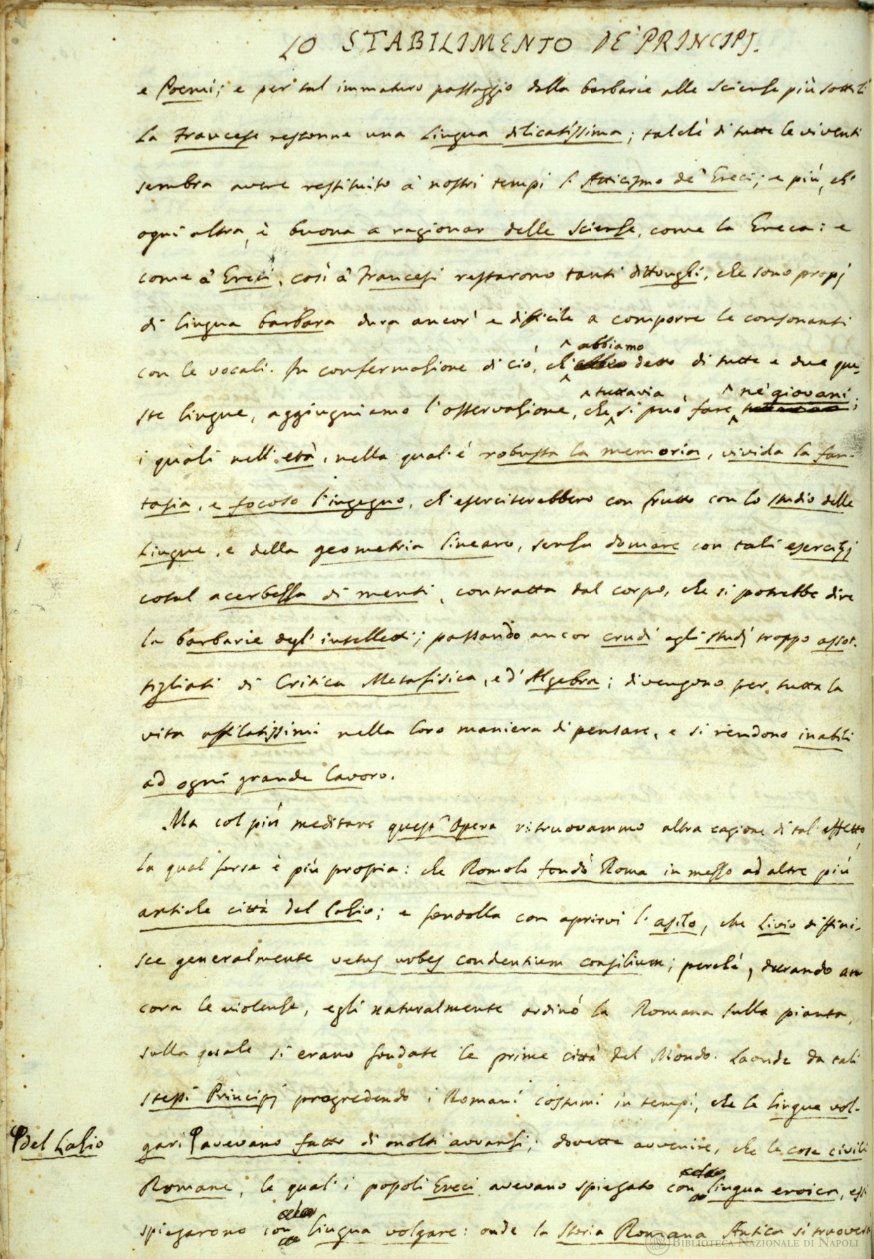 LO STABILIMENTO DE' PRINCIPJ.
e Poemi; e per tal immaturo passaggio dalla barbarie alle scienze più sottili
La Francese restonne una Lingua dilicatissima; talchè di tutte le viventi
sembra avere restituito a' nostri tempi l'Atticismo de' Greci; e più, ch'
ogni altra, è buona a ragionar delle scienze, come la Greca: e
come a' Greci, così a' Francesi restarono tanti dittonghi, che sono propj
di lingua barbara dura ancor' e difficile a comporre le consonanti
con le vocali. In confermazione di ciò, ch' abbiamo detto di tutte e due que-
ste lingue, aggiugniamo l'osservazione, che tuttavia si può fare ne' giovani;
i quali nell'età, nella qual' è robusta la memoria, vivida la fan-
tasia, e focoso l'ingegno, ch' eserciterebbero con frutto con lo studio delle
Lingue, e della geometria lineare, senza domare con tali esercizj
cotal acerbezza di menti, contratta dal corpo, che si potrebbe dire
la barbarie degl'intelletti; passando ancor crudi agli studj troppo assot-
tigliati di Critica Metafisica, e d'Algebra; divengono per tutta la
vita affilatissimi nella loro maniera di pensare, e si rendono inabili
ad ogni grande lavoro.
Ma col più meditare quest' Opera ritruovammo altra cagione di tal' effetto,
la qual forse è più propia: che Romolo fondò Roma in mezzo ad altre più
antiche città del Lazio; e fondolla con aprirvi l'asilo, che Livio diffini-
sce generalmente vetus urbes condentium consilium; perchè, durando an-
cora le violenze, egli naturalmente ordinò la Romana sulla pianta,
sulla quale si erano fondate le prime città del Mondo. Laonde da tali
stessi Principj progredendo i Romani costumi in tempi, che le lingue vol-
gari avevano fatto di molti avvanzi; dovette avvenire, che le cose civili
del Lazio
Romane, le quali i popoli Greci avevano spiegato con lingua eroica, essi
spiegarono con lingua volgare: onde la Storia Romana Antica si truoverà
BIBLIOTECA NAZIONALE DI NAPOLI